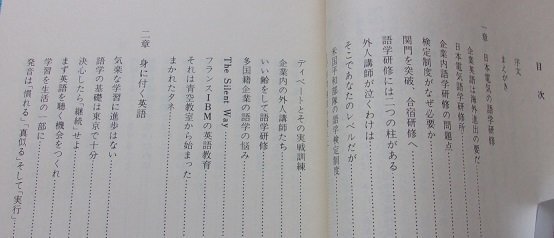 目次
序文
まえがき
一章 日本電気の語学研修
企業英語は海外進出の要だ
日本電気語学研修所
企業内語学研修の問題点
検定制度がなぜ必要か
関門を突破、合宿研修へ
語学研修には二つの柱がある
外人講師が説くわけは
そこであなたのレベルだが
米国平和部隊の語学検定制度
ディベートとその実戦訓練
企業内の外人講師たち
いい齢をして語学研修
多国籍企業の語学の悩み
The Silent Way
フランスIBMの英語教育
それは青空教室から始まった
まかれたタネ
二章 身に付く英語
気楽な学習に進歩はない
語学の基礎は東京で十分
決心したら「継続」せよ
まず英語を聴く機会をつくれ
学習を生活の一部に
発音は「慣れる」「真似る」そして「実行」